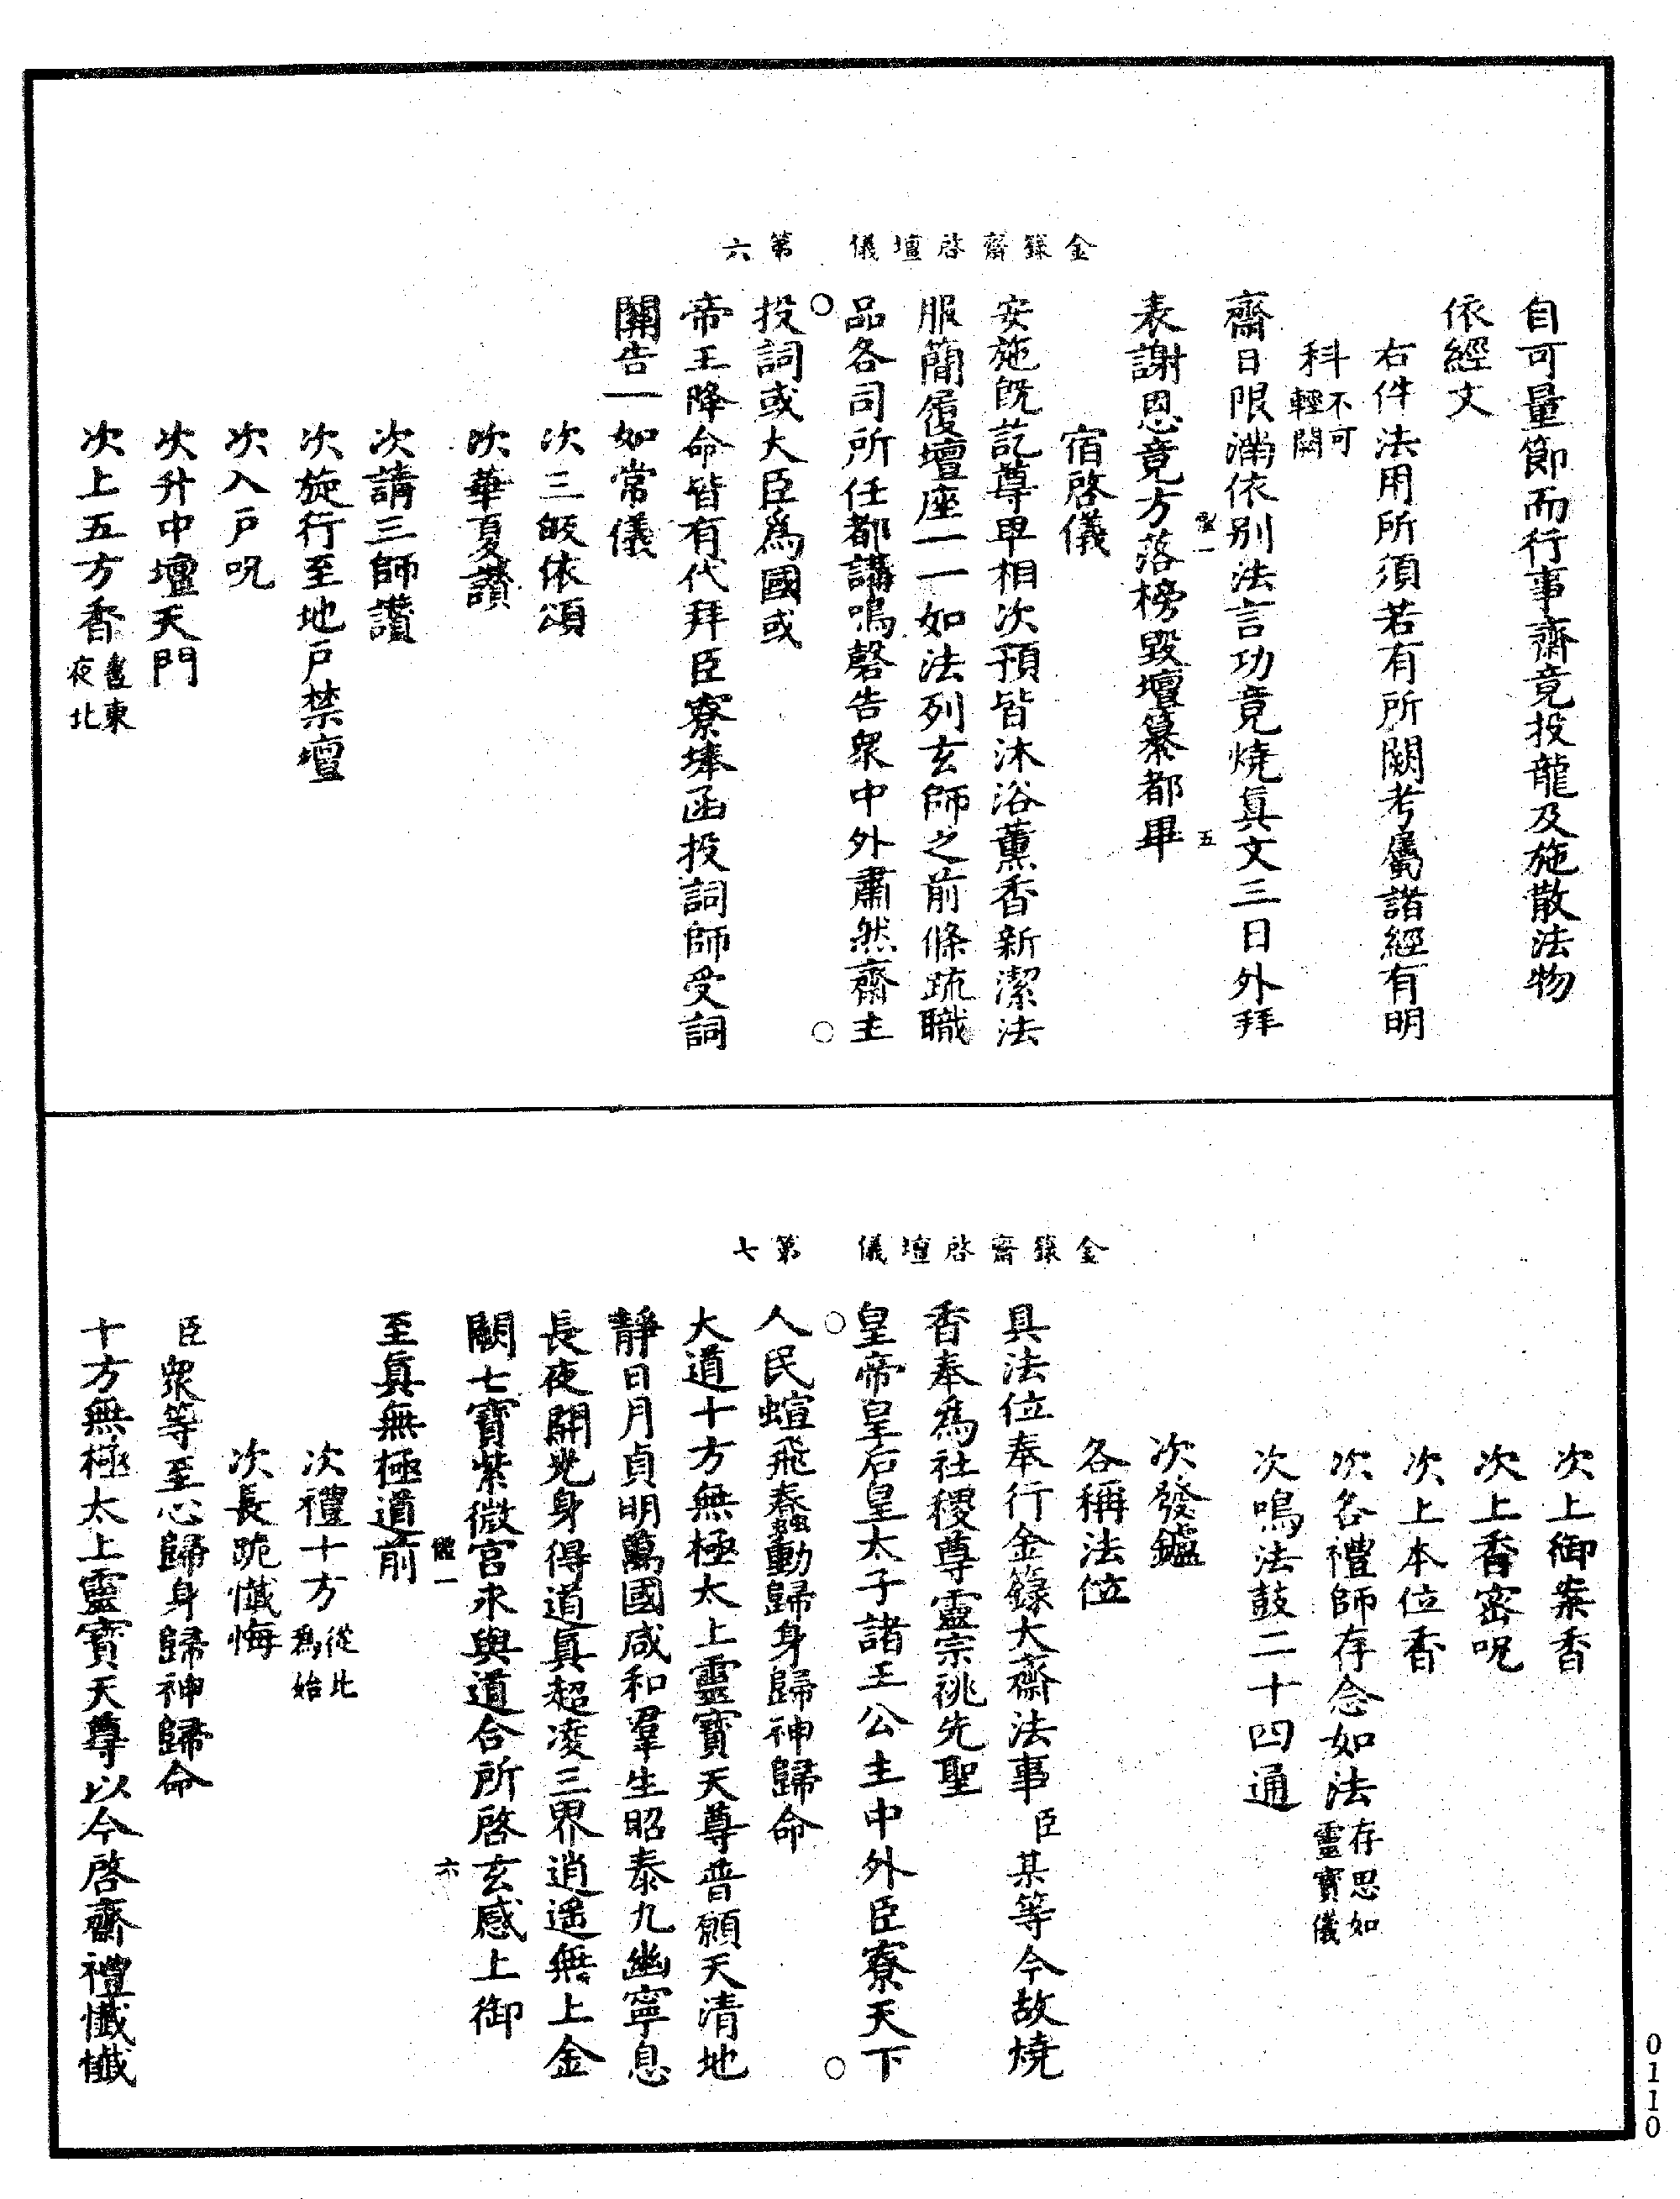 金籙齋啓壇儀 第六
自可量節而行事齋竟投龍及施散法物
依經文
右件法用所須若有所闕考屬諸經有明
科不可輕闕
齋日限滿依別法言功竟燒眞文三日外拜
表謝恩竟方落榜毀壇纂都畢
五
宿啓儀
安施旣訖尊卑相次預皆沐浴薰香新潔法
服簡履壇座一一如法列玄師之前條疏職
品各司所任都講鳴磬告衆中外肅然齋主
投詞或大臣爲國或
帝王降命皆有代拜臣寮捧函投詞師受詞
關告一如常儀
次三皈依頌
次華夏讚
次請三師讚
次旋行至地戶禁壇
次入戶呪
次升中壇天門
次上五方香晝東夜北
金籙齋啓壇儀 第七
次上御案香
次上香密呪
次上本位香
次各禮師存念如法存思如靈寶儀
次鳴法鼓二十四通
次發鑪
各稱法位
具法位奉行金籙大齋法事臣某等今故燒
香奉爲社稷尊靈宗祧先聖
皇帝皇后皇太子諸王公主中外臣寮天下
人民蝖飛蠢動歸身歸神歸命
大道十方無極太上靈寶天尊普願天清地
靜日月貞明萬國咸和羣生昭泰九幽寧息
長夜開光身得道眞超凌三界逍遙無上金
闕七寶紫微宮永與道合所啓玄感上御
六
至眞無極道前
次禮十方從北爲始
次長跪懺悔
臣衆等至心歸身歸神歸命
十方無極太上靈寶天尊以今啓齋禮懺懺
0110